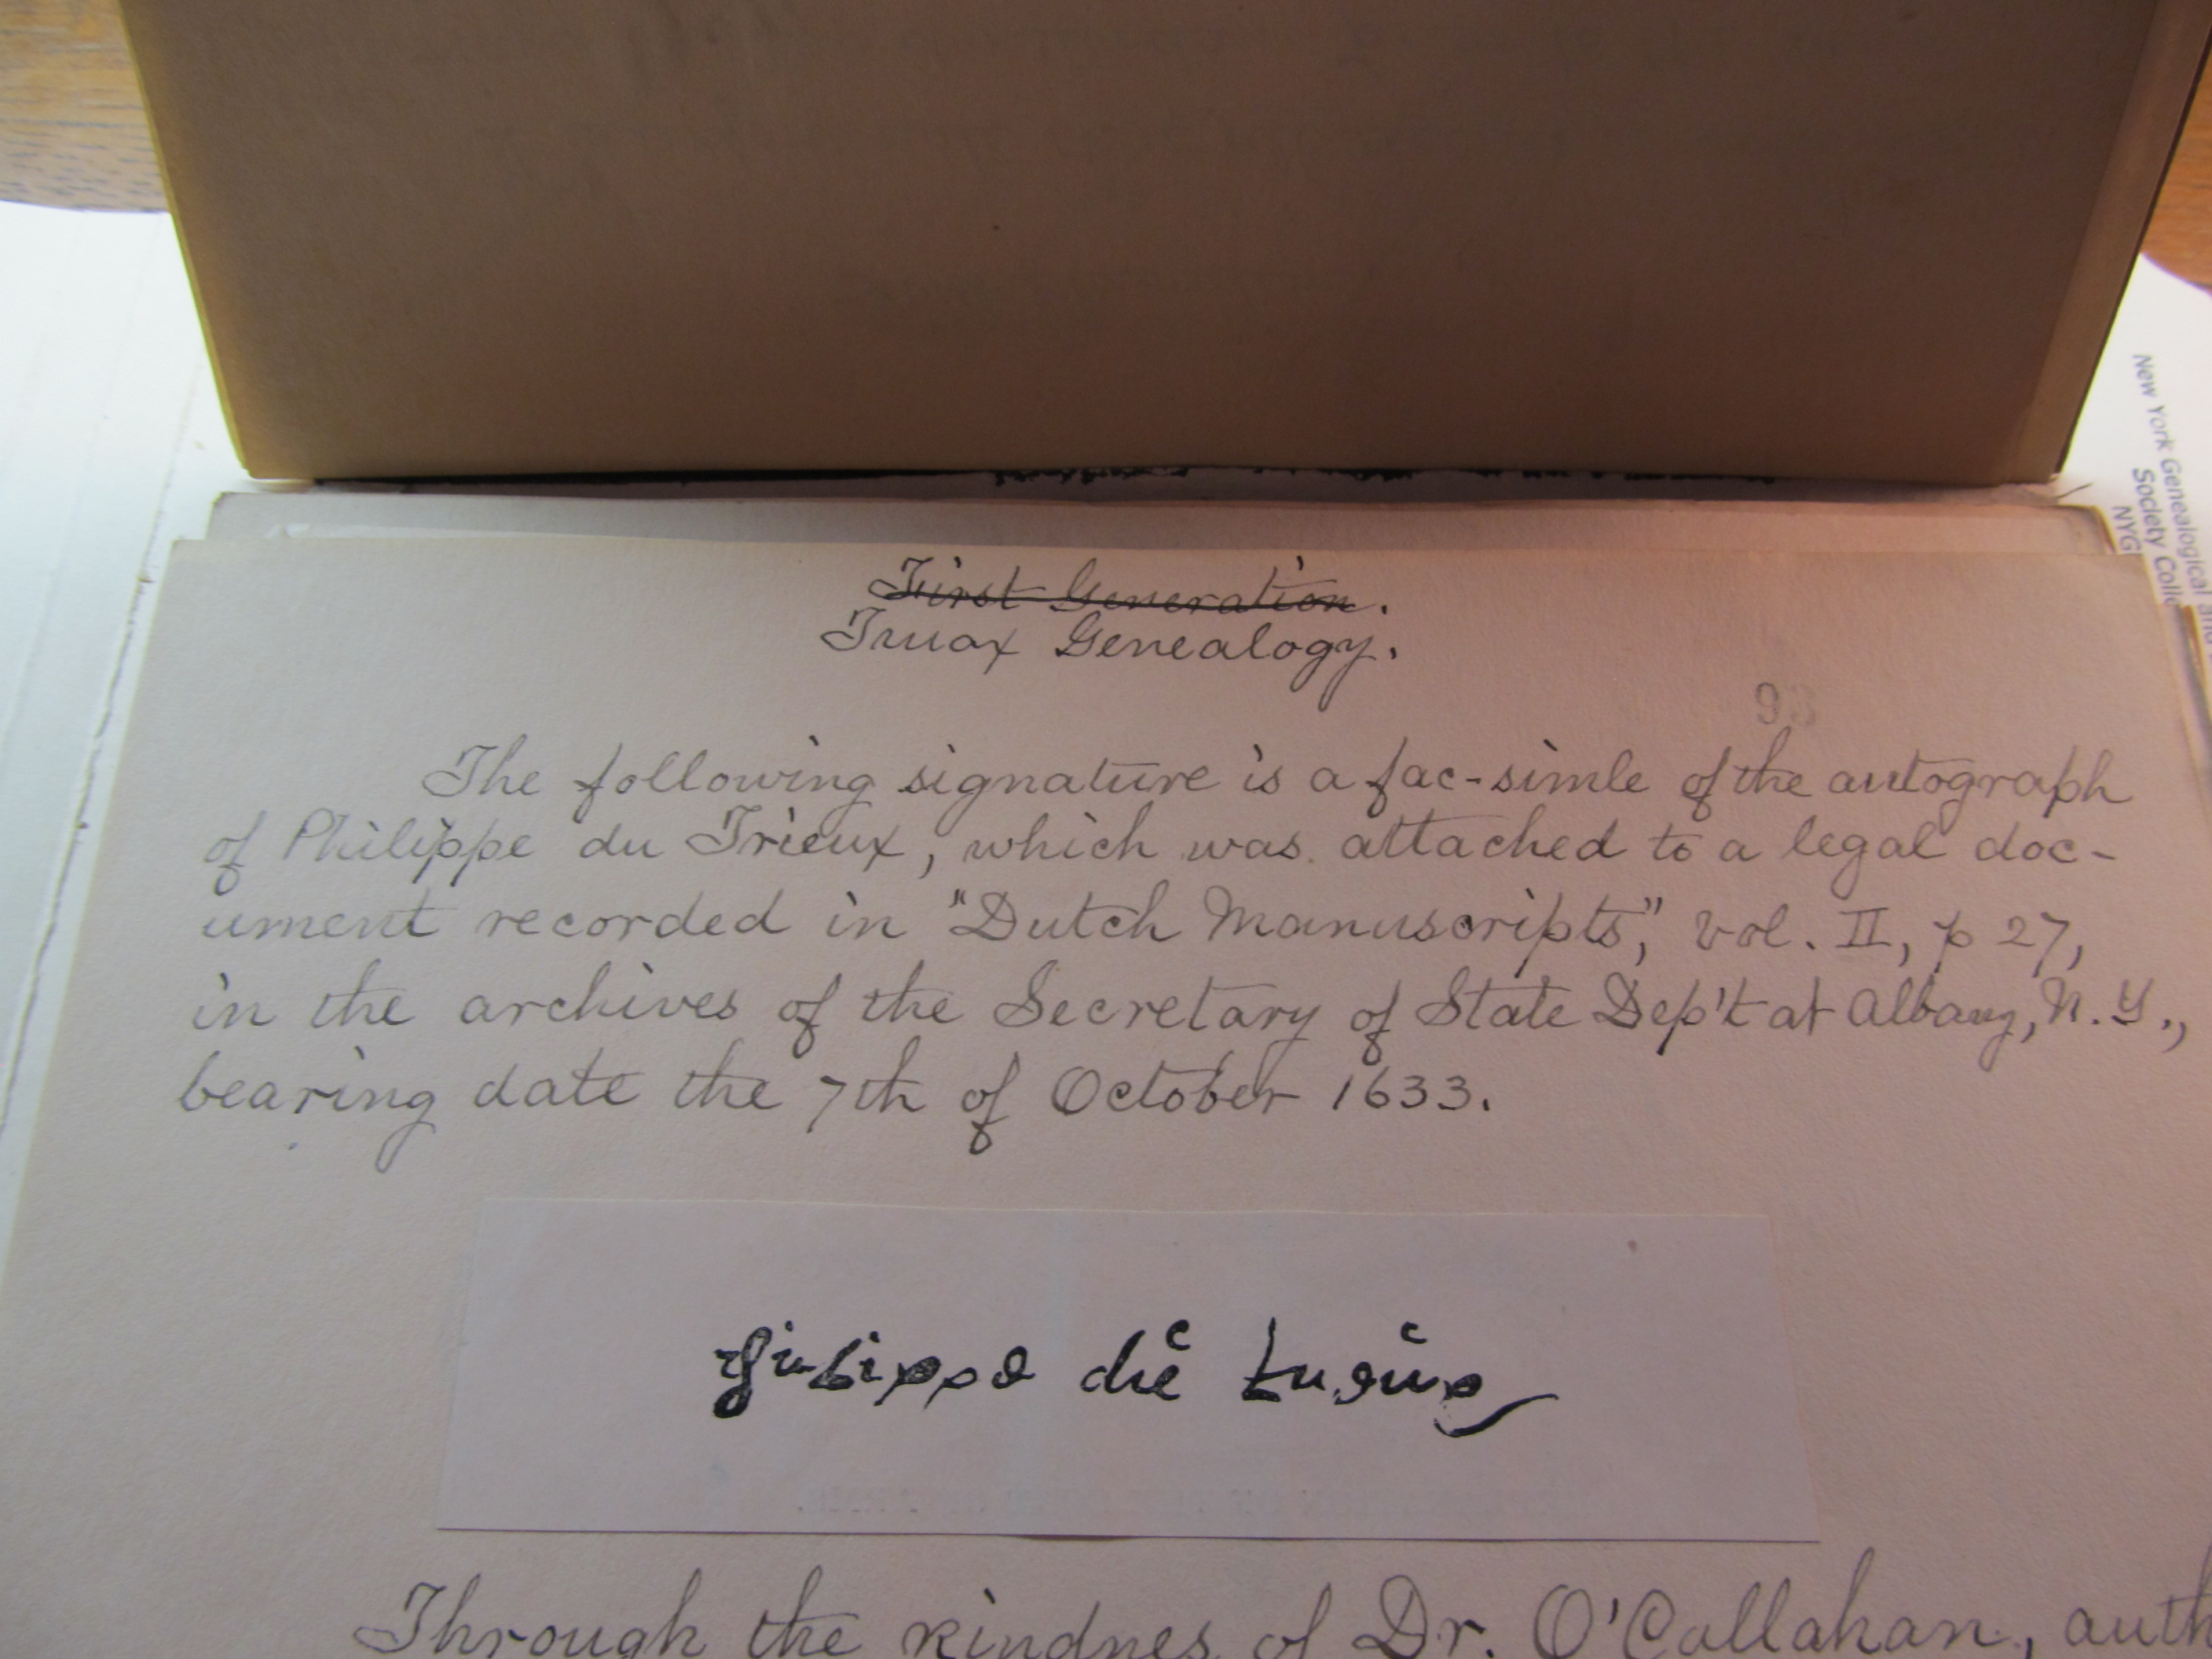 First Generation.
Truax Genealogy.
The following signature is a fac-simle of the autograph
of Philippe du Trieux, which was attached to a legal doc-
ument recorded in "Dutch Manuscripts," vol. II, p 27,
in the archives of the Secretary of State Dep't at Albany, N.Y.,
bearing date the 7th of October 1633.
Through the kindnes of Dr. O'Callahan, auth
New York Genealogical and
Society Colle
NYG